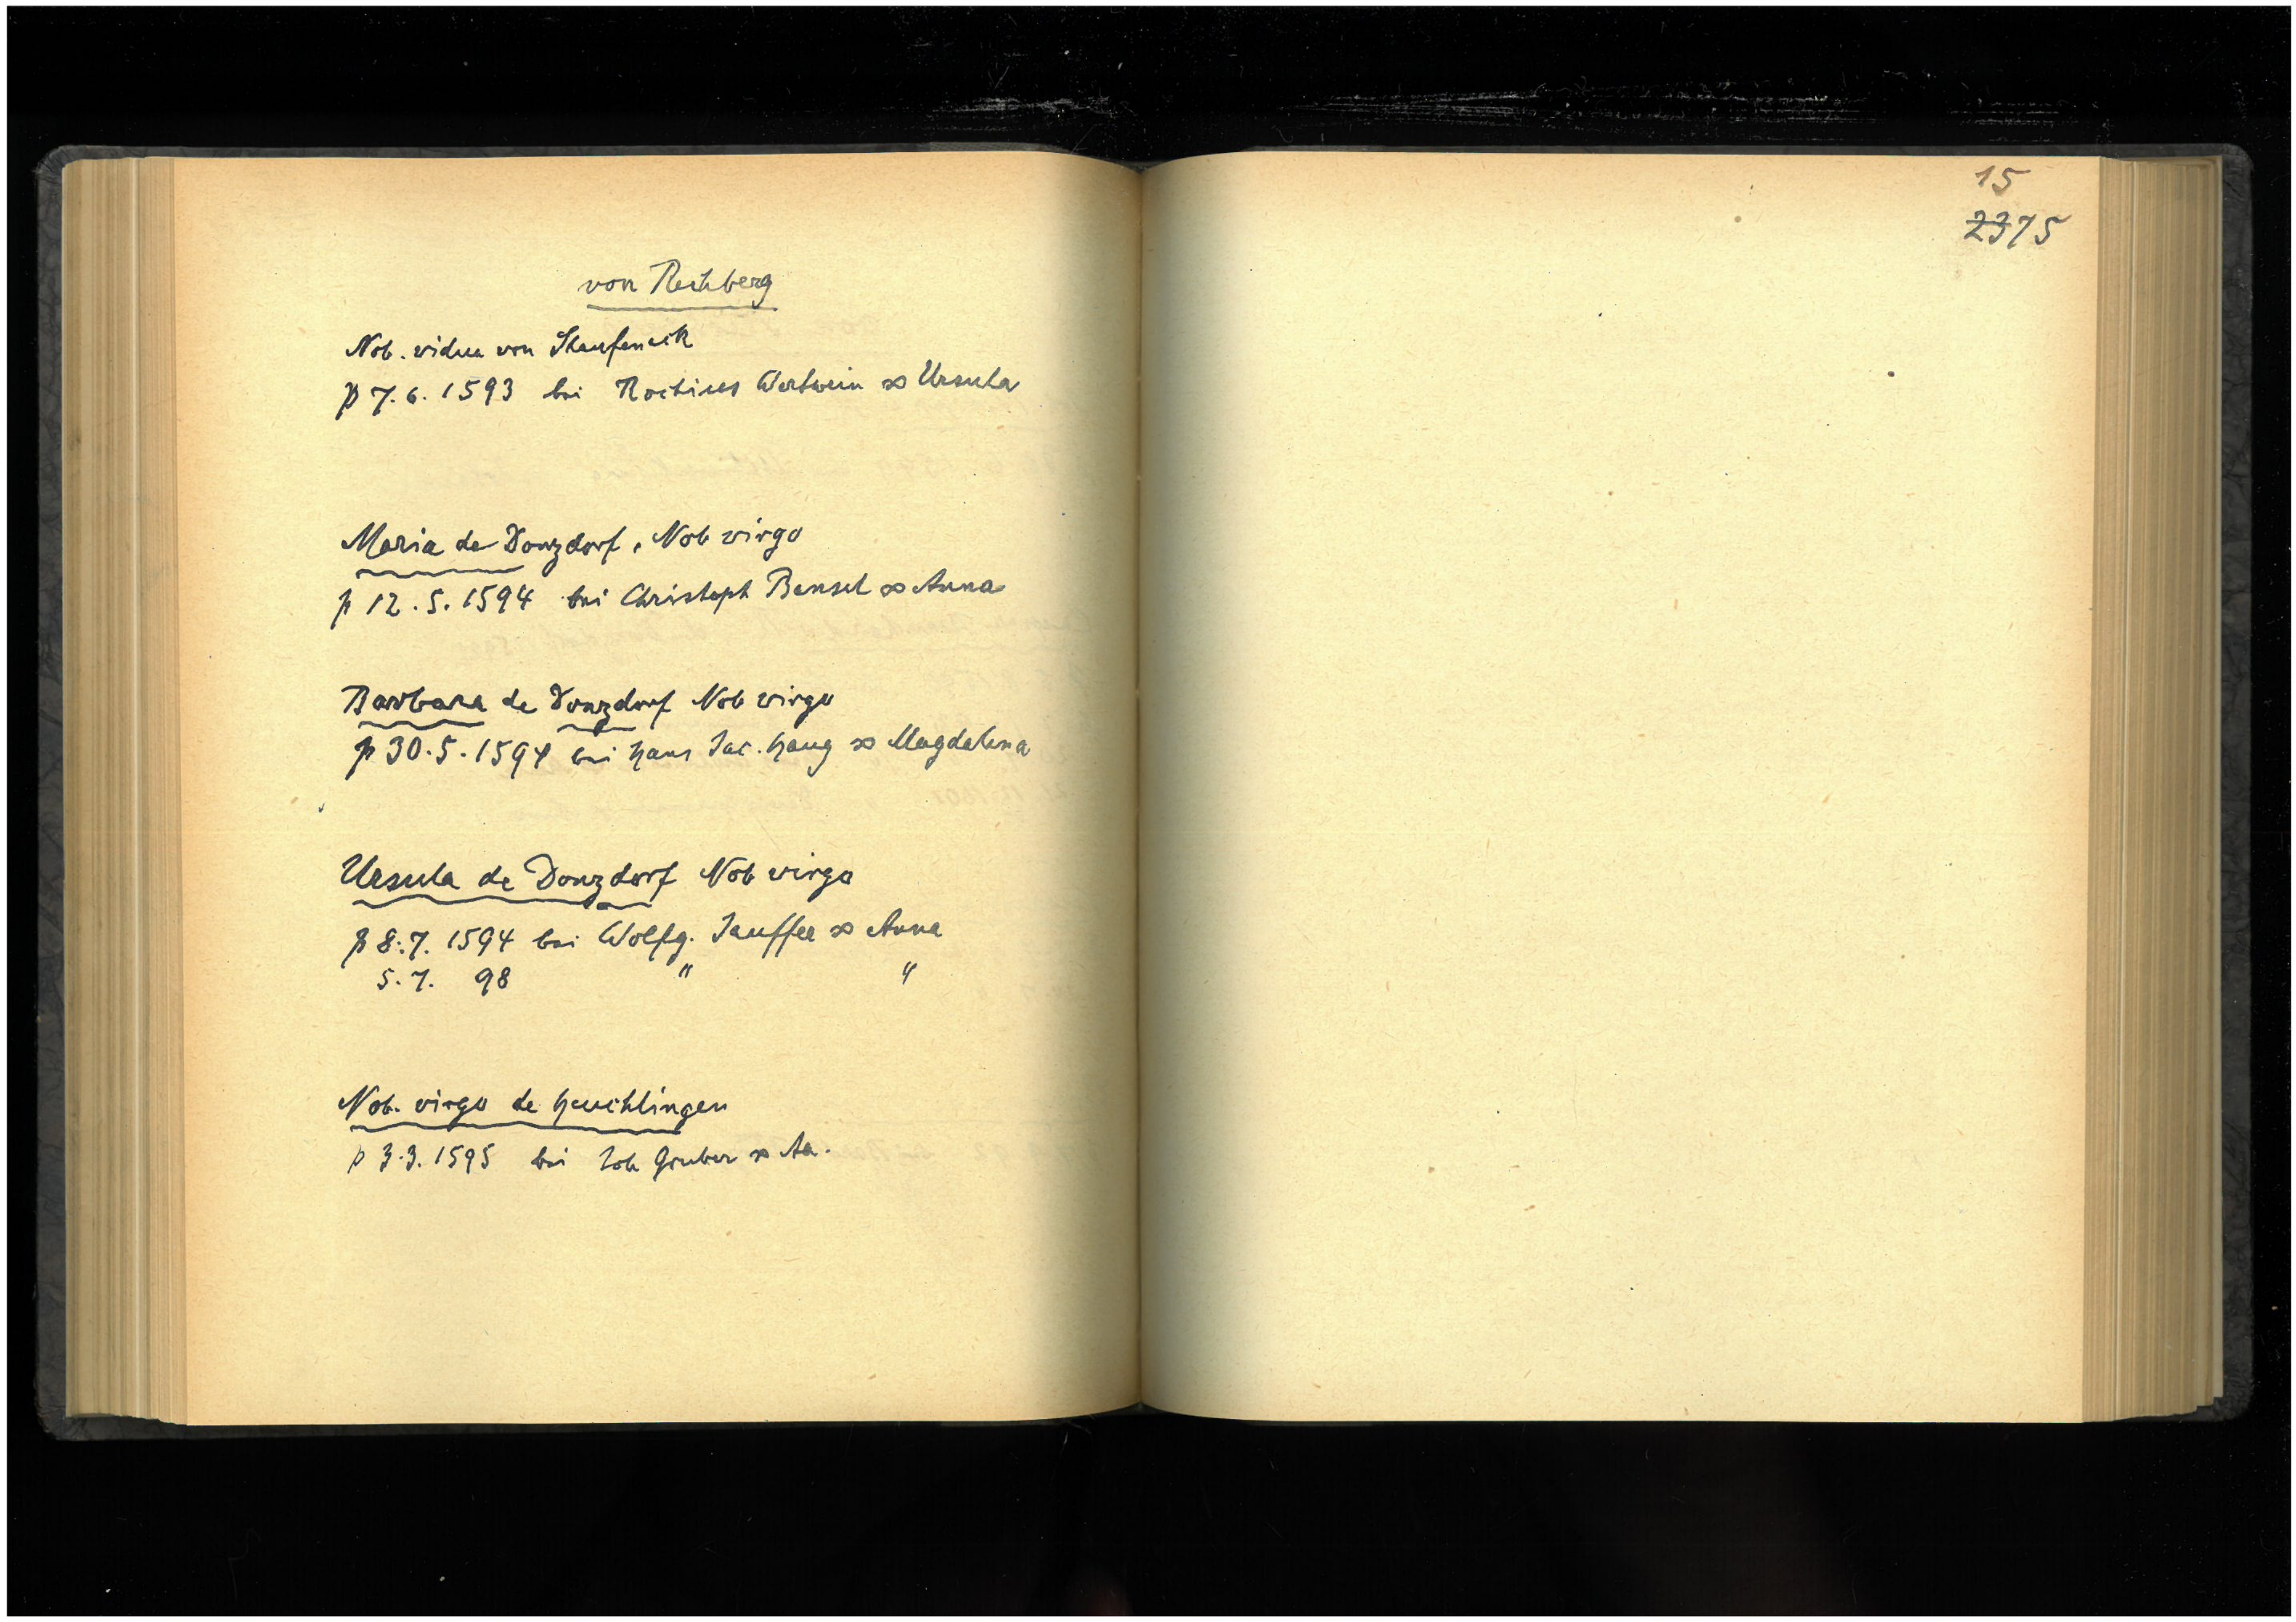 von Rechberg
Nob. vidua von Staufeneck
p 7.6.1593 bei Rochius Wertwein ∞ Ursula
Maria de Donzdorf, Nob virgo
p 12.5.1594 bei Christoph Bensel ∞ Anna
Barbara de Donzdorf Nob virgo
p 30.5.1594 bei Hans Jac. Haug ∞ Magdalena
Ursula de Donzdorf Nob virgo
p 8.7.1594 bei Wolfg. Jauffer ∞ Anna
5.7. 98 " "
Nob. virgo de Heuchlingen
p 3.3.1595 bei Joh Gruber ∞ Aa.
15
2375